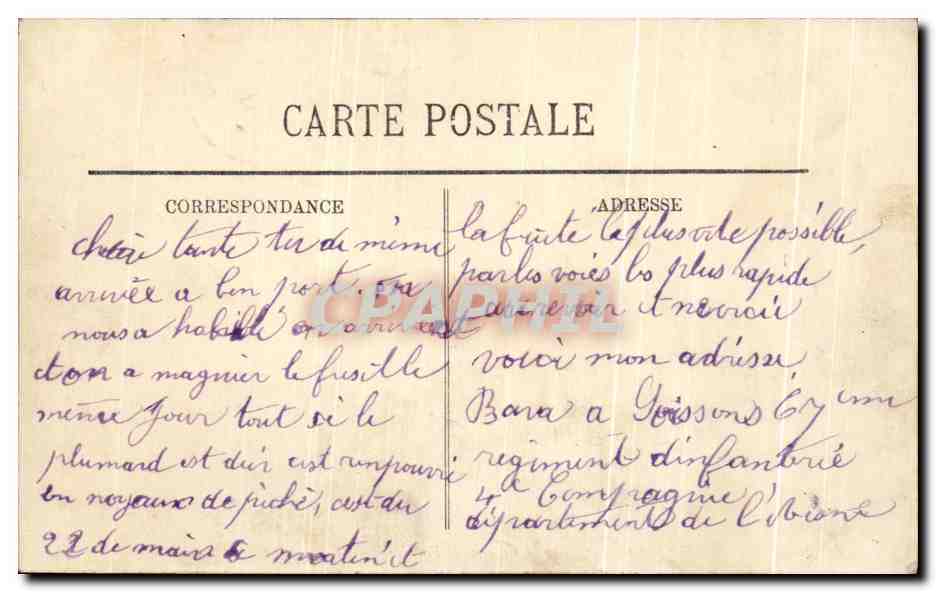 CARTE POSTALE
CORRESPONDANCE
chère tante de même
arrivée a bon port on
nous a habillé en arrivant
et on a magnier le fusille
même Jour tout si le
plumard est dur c'est rempouri
en noyaux de pêché, c'est du
22 de mains matin et
ADRESSE
la fuite la plus vite possible,
par les voiés les plus rapide
au revoir
voici mon adresse
Bara a Soissons 67 eme
régiment d'infantrié
4e Compagnie
département de l'Aisne
CPAPHIL